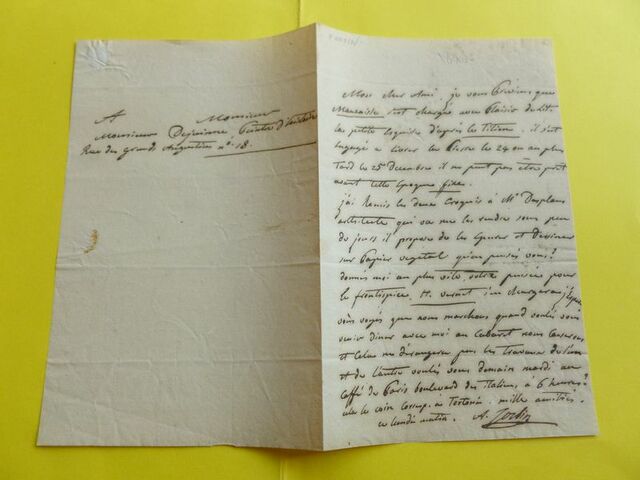 A Monsieur
Monsieur Dejuinne, Peintre d'histoire
Rue des grands Augustins n° 18.
Mon cher Ami je vous préviens que
Mauzaisse s'est chargé avec plaisir de lit.
la petite Esquisse d'après le Titien. il s'est
engagé a livrer la Pierre le 24 ou au plus
tard le 25 Décembre il ne peut pas être prêt
avant cette Epoque fixe
j'ai Remis les deux Croquis à Mr Desplans
architecte qui va me les rendre sous peu
de jours il propose de les épurer et dessiner
sur Papier végétal qu'en pensés vous?
donnés moi au plus vite votre pensée pour
le frontispice, H. vernet s'en chargera j'espère
vous voyés que nous marchons quand voulés vous
venir diner avec moi au Cabaret nous causerons
et Celà ne dérangera pas les Travaux de l'un
et de l'autre voulés vous demain mardi au
Caffé de Paris boulevard des Italiens, à 6 heures?
mille amitiés.
ce lundi matin. A.